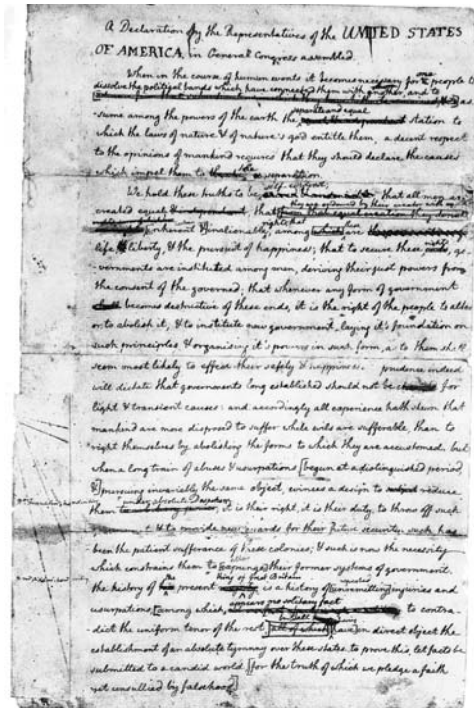 A Declaration by the Representatives of the UNITED STATES
OF AMERICA, in General Congress assembled.
When in the course of human events it becomes necessary for one people to
dissolve the political bands which have connected them with another, and to
-sume among the powers of the earth the separate and equal station to
which the laws of nature & of nature's god entitle them, a decent respect
to the opinions of mankind requires that they should declare the causes
which impel them to the separation.
We hold these truths to be self-evident, that all men are
created equal & independent; that they are endowed by their creator with
inherent & inalienable, among which are
life, liberty, & the pursuit of happiness; that to secure these rights, go-
vernments are instituted among men, deriving their just powers from
the consent of the governed; that whenever any form of government
becomes destructive of these ends, it is the right of the people to alter
or to abolish it, & to institute new government, laying it's foundation on
such principles & organising it's powers in such form, as to them shall
seem most likely to effect their safety & happiness. prudence indeed
will dictate that governments long established should not be changed for
light & transient causes: and accordingly all experience hath shewn that
mankind are more disposed to suffer while evils are sufferable, than to
right themselves by abolishing the forms to which they are accustomed. but
when a long train of abuses & usurpations [begun at a distinguished period,
&] pursuing invariably the same object, evinces a design to reduce
them under absolute despotism, it is their right, it is their duty, to throw off such
& to provide new guards for their future security. such has
been the patient sufferance of these colonies; & such is now the necessity
which constrains them to [expunge] their former systems of government.
the history of the present king of Great Britain is a history of [unremitting] repeated injuries and
usurpations, [among which, appears no solitary fact to contra-
dict the uniform tenor of the rest, [all of which] have in direct object the
establishment of an absolute tyranny over these states. to prove this, let facts be
submitted to a candid world, [for the truth of which we pledge a faith
yet unsullied by falsehood]